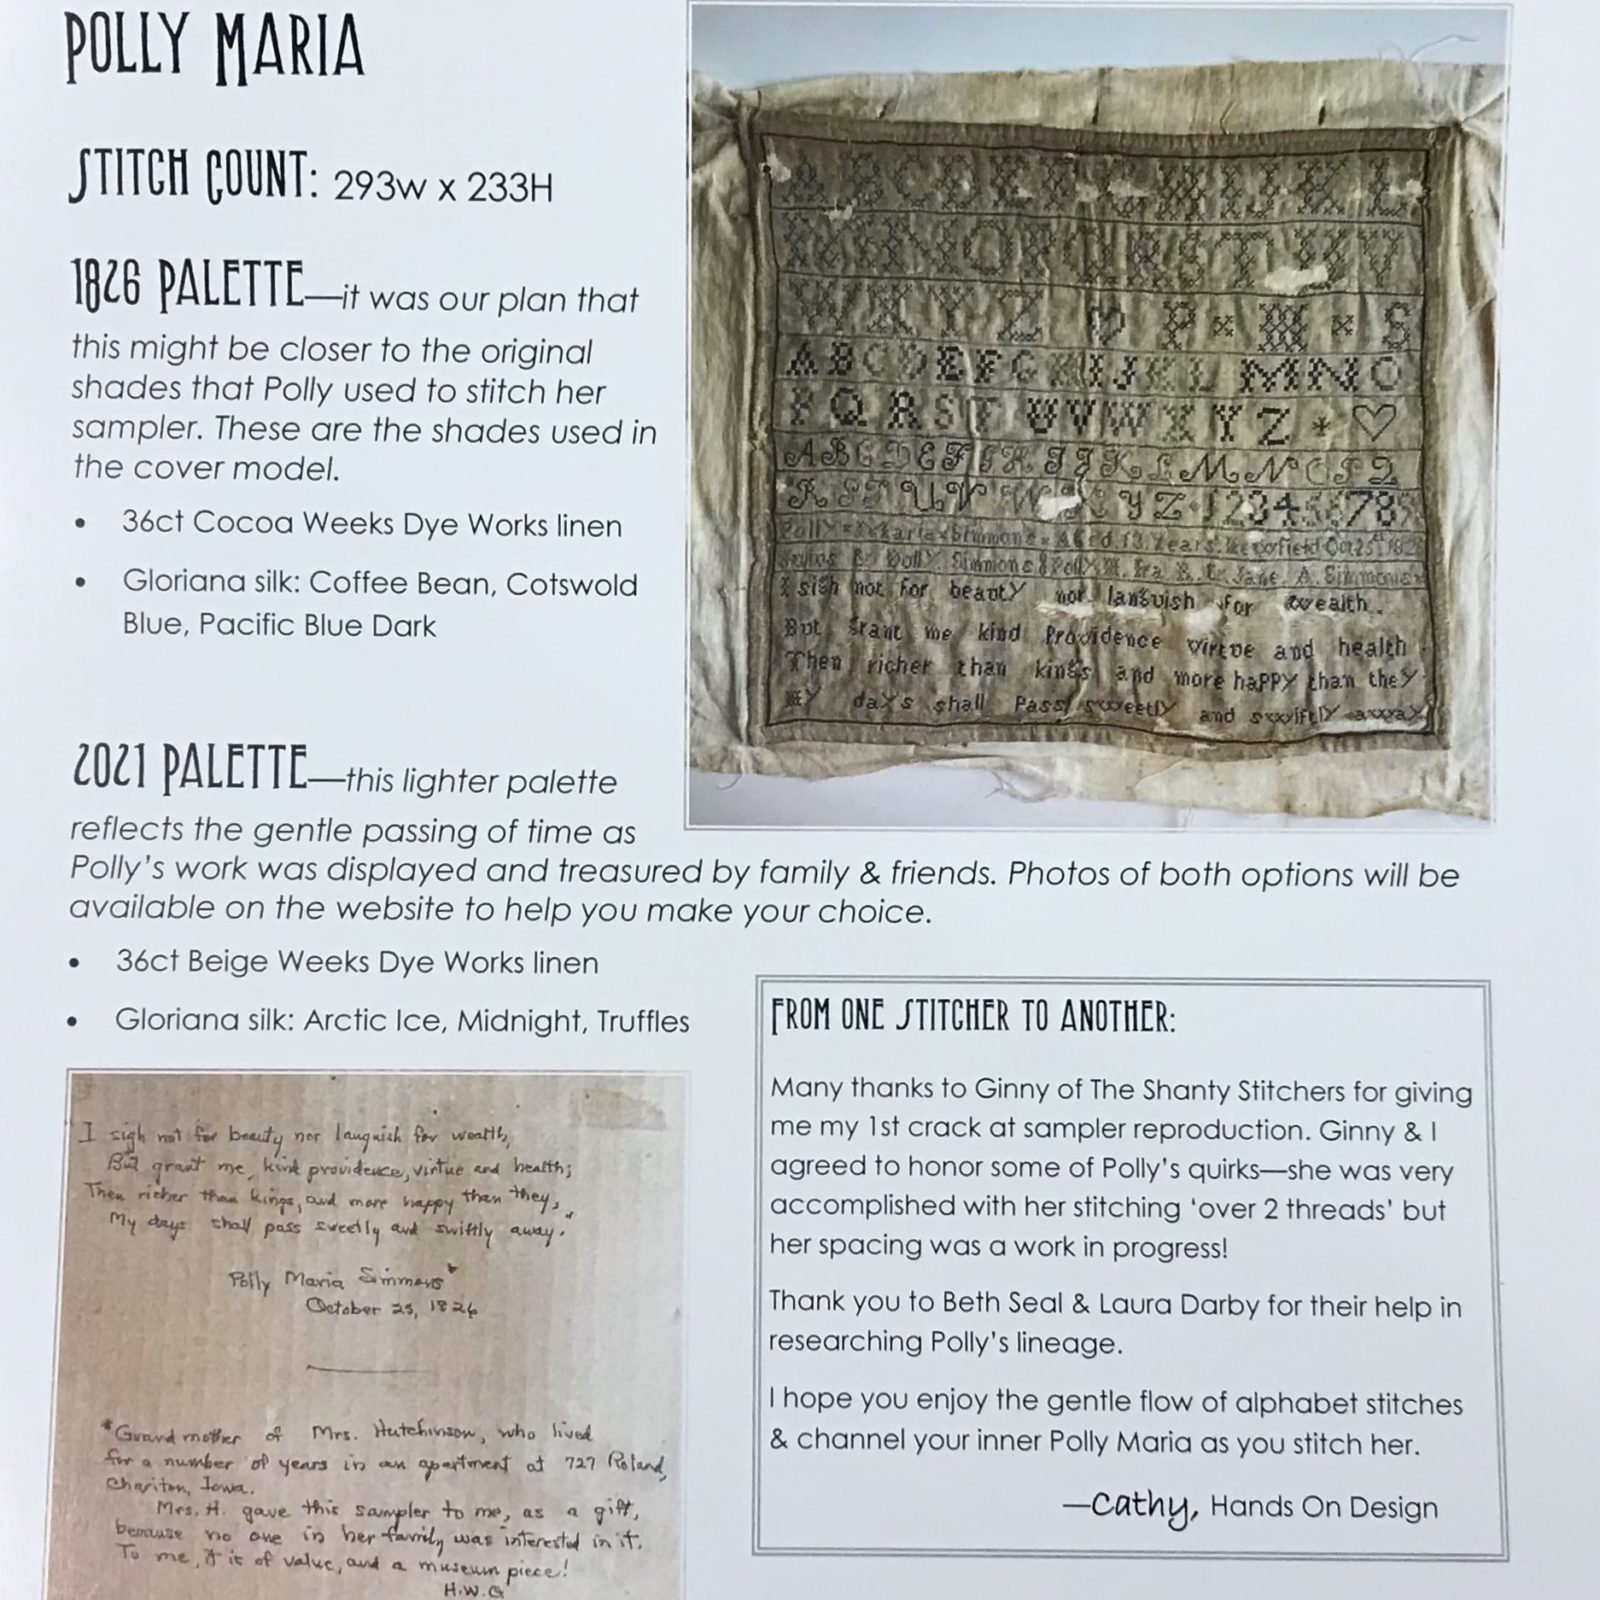 POLLY MARIA
STITCH COUNT: 293w x 233H
1826 PALETTE—it was our plan that
this might be closer to the original
shades that Polly used to stitch her
sampler. These are the shades used in
the cover model.
• 36ct Cocoa Weeks Dye Works linen
• Gloriana silk: Coffee Bean, Cotswold
Blue, Pacific Blue Dark
2021 PALETTE—this lighter palette
reflects the gentle passing of time as
Polly's work was displayed and treasured by family & friends. Photos of both options will be
available on the website to help you make your choice.
• 36ct Beige Weeks Dye Works linen
• Gloriana silk: Arctic Ice, Midnight, Truffles
A B C D E F G H I J K L
M N O P Q R S T U V
W X Y Z ♡ P × M × S
A B C D E F G H I J K L M N O
P Q R S T U V W X Y Z * ♡
A B C D E F G H I J K L M N O P Q
R S T U V W X Y Z 1 2 3 4 5 6 7 8 9
Polly × Maria × Simmons × Aged 13 Years. Oct 25th 182
Simmons & Polly M. Ira. Jane. A. Simmons
I sigh not for beauty nor languish for wealth.
But grant me kind Providence virtue and health
Then richer than kings and more haPPY than theY
MY daYs shall Pass sweetlY and swiftlY awaY
I sigh not for beauty nor languish for wealth,
But grant me, kind providence, virtue and health;
Then richer than kings, and more happy than they,
My days shall pass sweetly and swiftly away.
Polly Maria Simmons*
October 25, 1826
*Grandmother of Mrs. Hutchinson, who lived
for a number of years in an apartment at 727 Roland,
Chariton, Iowa.
Mrs. H. gave this sampler to me, as a gift,
because no one in her family was interested in it.
To me, it is of value, and a museum piece!
H.W.G
FROM ONE STITCHER TO ANOTHER:
Many thanks to Ginny of The Shanty Stitchers for giving
me my 1st crack at sampler reproduction. Ginny & I
agreed to honor some of Polly's quirks—she was very
accomplished with her stitching 'over 2 threads' but
her spacing was a work in progress!
Thank you to Beth Seal & Laura Darby for their help in
researching Polly's lineage.
I hope you enjoy the gentle flow of alphabet stitches
& channel your inner Polly Maria as you stitch her.
—Cathy, Hands On Design